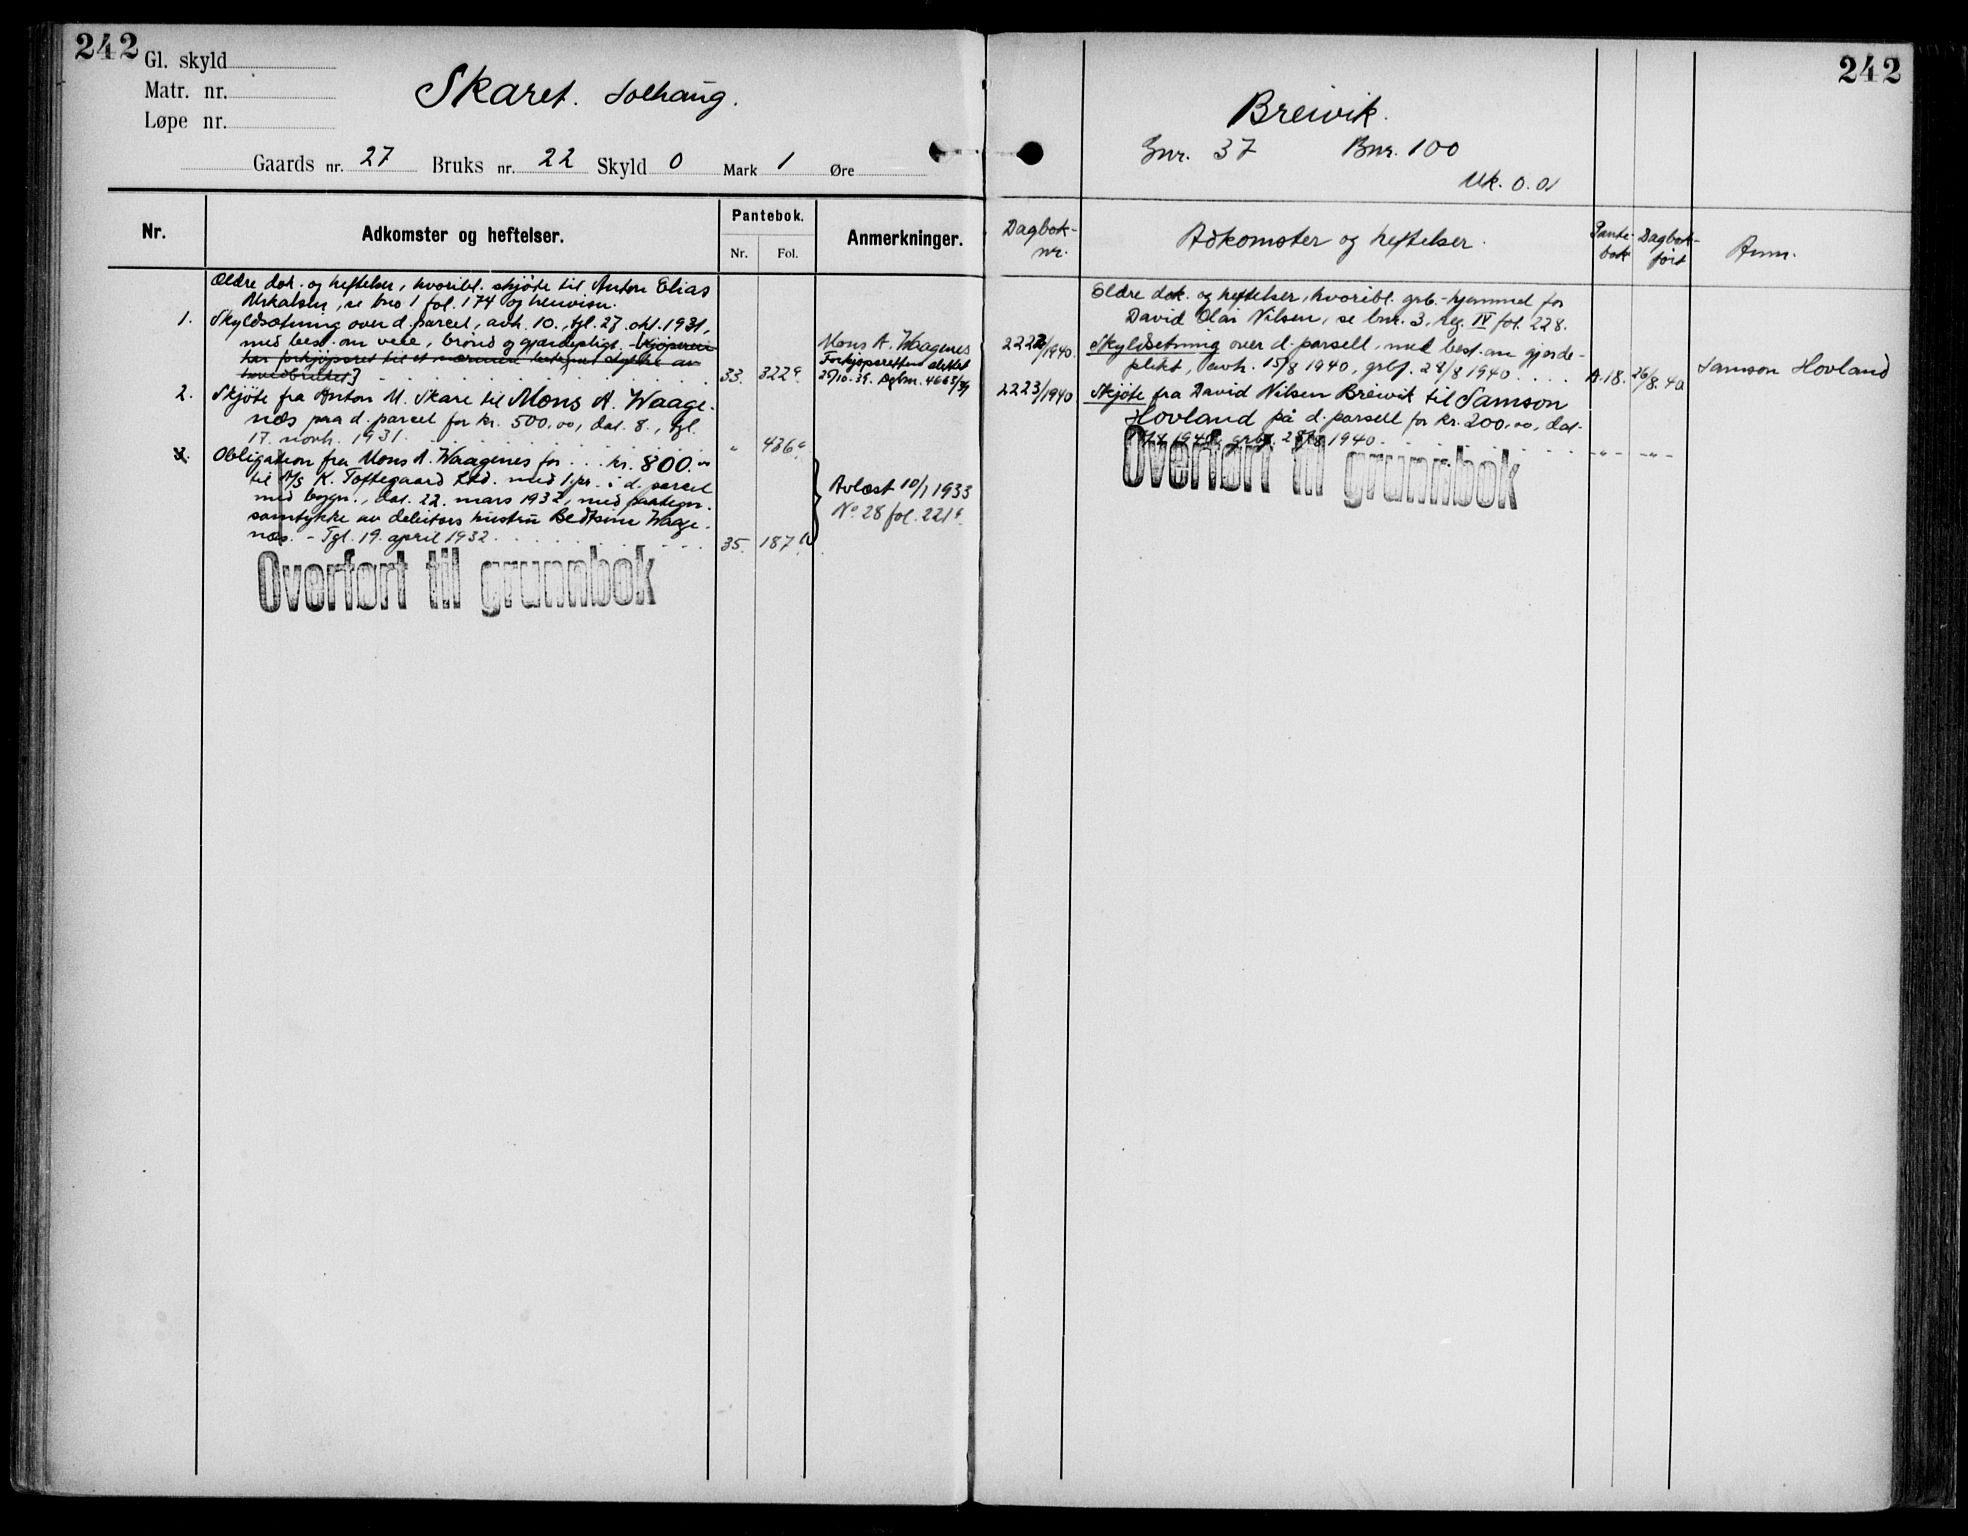 242
Gl. skyld
Matr. nr.
Løpe nr.
Skaret. Solhaug.
Gaards nr. 27 Bruks nr. 22 Skyld 0 Mark 1 Øre
Nr.
Adkomster og heftelser.
Pantebok.
Nr. Fol.
Anmerkninger.
Ældre dok. og heftelser, hvoribl. skjöte til Anton Elias
se bno 1 fol. 174 og henvisn.
1. Skyldsætning over d. parcel, avh. 10., tgl. 27. okt. 1931,
med best. om veie, brönd og gjærdepligt. - [Kjöperen
har forkjöpsret til et nærmere betegnet stykke av
hovedbruket] 33. 322a.
Mons A. Waagenes
Forkjøpsretten slettet
25/10.39. Dgbnr.
2. Skjöte fra Anton M. Skare til Mons A. Waage-
næs paa d. parcel for kr. 500,00, dat. 8., tgl.
17. novb. 1931. " 436a.
3. Obligation fra Mons A. Waagenes for ... kr. 800.00
til A/S K. Toftegaard Ltd. med 1. pr. i d. parcel
med bygn., dat. 22. mars 1932, med paategn.
samtykke av debitors hustru Waage-
næs. - Tgl. 19. april 1932. 35. 187b.
Avlæst 10/1 1933
No 28 fol. 221a.
Overført til grunnbok
242
Breivik.
Gnr. 37 Bnr. 100
Mk. 0.01
Dagbok-
nr.
Adkomster og heftelser.
Pante-
bok
Dagbok-
ført
Anm.
Eldre dok. og heftelser, hvoribl. grb.-hjemmel for
David Olai Nilsen, se bnr. 3, reg. IV fol. 228.
2222/1940. Skyldsetning over d. parsell, med best. om gjerde-
plikt, avh. 15/8 1940, grbf. 28/8 1940. . . . A.18. 26/8.40
Samson Hovland
2223/1940 Skjöte fra David Nilsen Breivik til Samson
Hovland på d. parsell for kr. 200,00, dat.
1940, grbf. 28/8 1940. - " - - " -
Overført til grunnbok